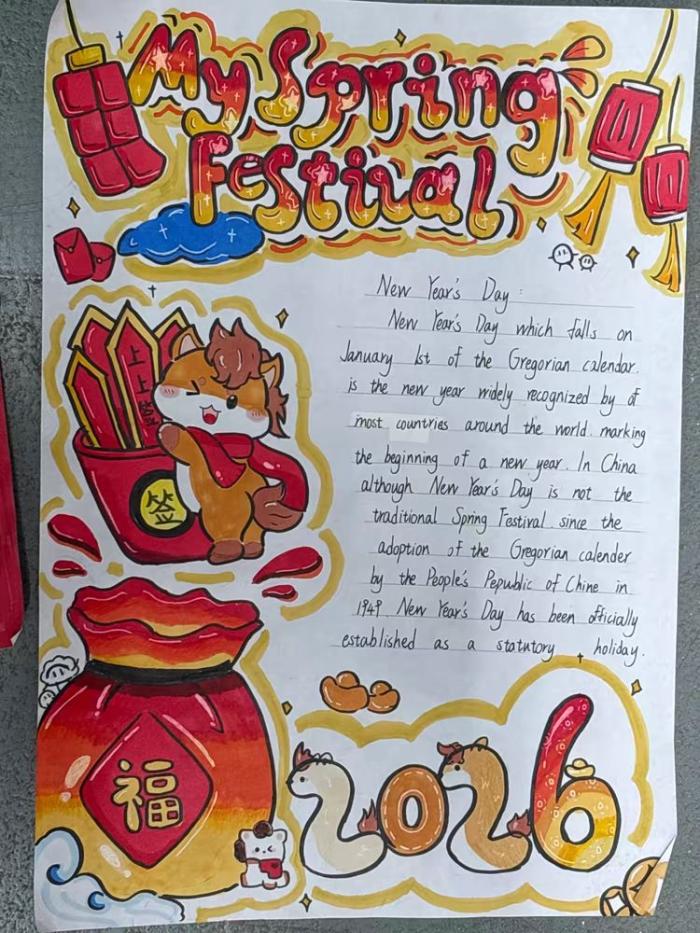 My Spring
Festival
New Year's Day:
New Year's Day which falls on
January 1st of the Gregorian calendar.
is the new year widely recognized by of
most countries around the world. marking
the beginning of a new year. In China
although New Year's Day is not the
traditional Spring Festival. since the
adoption of the Gregorian calender
by the People's Pepublic of Chine in
1949. New Year's Day has been officially
established as a statutory holiday.
上上签
签
福
2026